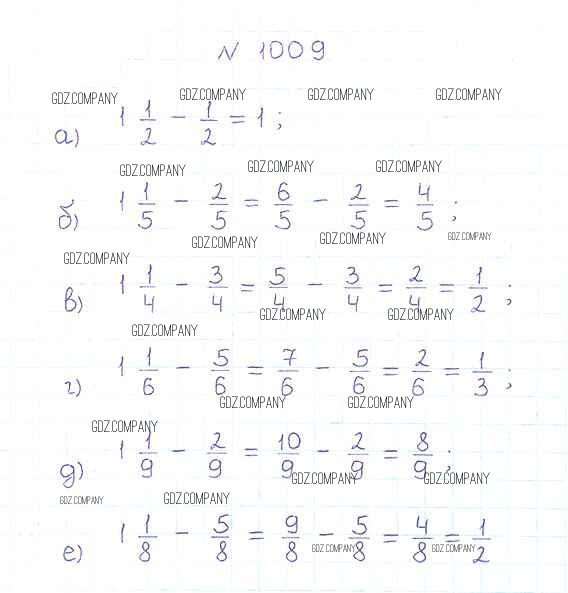 N 1009
GDZ.COMPANY GDZ.COMPANY GDZ.COMPANY GDZ.COMPANY
а) 1 1/2 - 1/2 = 1 ;
GDZ.COMPANY GDZ.COMPANY GDZ.COMPANY
б) 1 1/5 - 2/5 = 6/5 - 2/5 = 4/5 ;
GDZ.COMPANY GDZ.COMPANY GDZ.COMPANY
GDZ.COMPANY
в) 1 1/4 - 3/4 = 5/4 - 3/4 = 2/4 = 1/2 ;
GDZ.COMPANY GDZ.COMPANY
GDZ.COMPANY
г) 1 1/6 - 5/6 = 7/6 - 5/6 = 2/6 = 1/3 ;
GDZ.COMPANY GDZ.COMPANY
GDZ.COMPANY
д) 1 1/9 - 2/9 = 10/9 - 2/9 = 8/9 ;
GDZ.COMPANY GDZ.COMPANY
GDZ.COMPANY GDZ.COMPANY
е) 1 1/8 - 5/8 = 9/8 - 5/8 = 4/8 = 1/2
GDZ.COMPANY GDZ.COMPANY